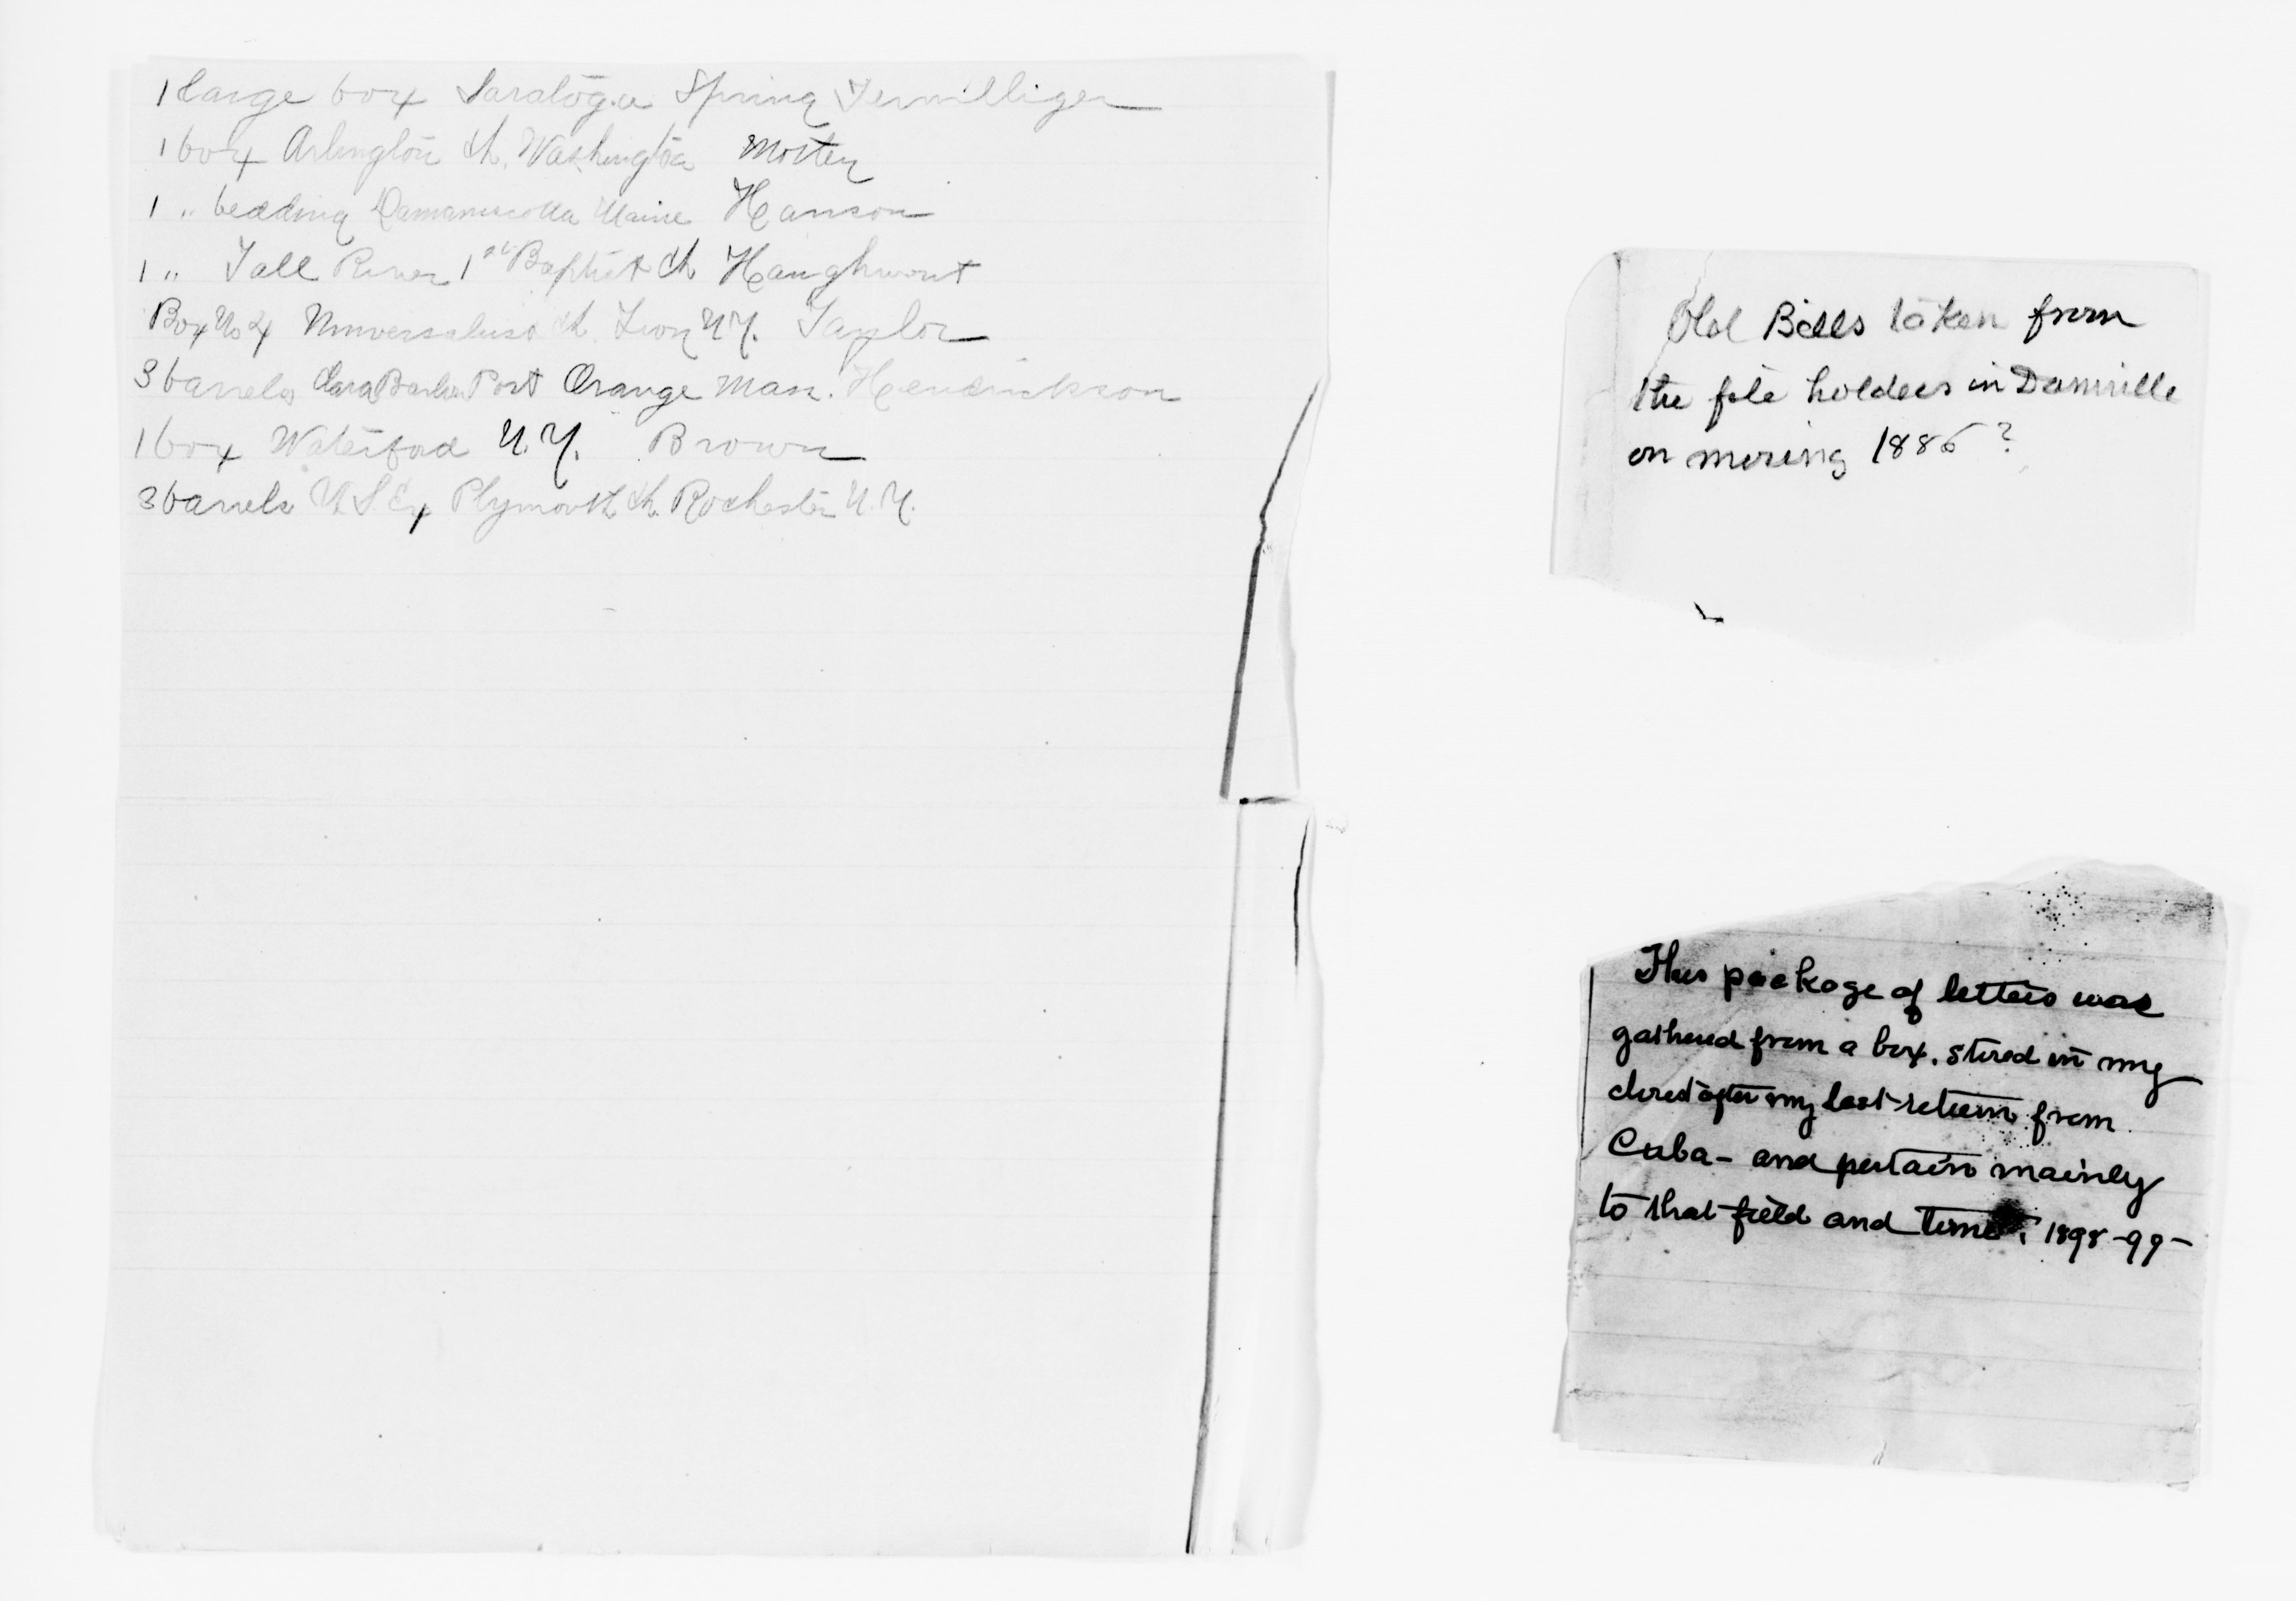 1 large box Saratoga Spring Terwilliger
1 box Arlington ch. Washington
1 " bedding Damariscotta Maine Hanson
1 " Fall River 1st Baptist ch Haughwout
Box No 4 ch. N.Y. Taylor
3 barrels Clara Barton Post Orange Mass. Hendrickson
1 box Waterford N.Y. Brown
3 barrels U.S. Ex Plymouth ch. Rochester N.Y.
Old Bills taken from
the file holders in Dansville
on moving 1886?
This package of letters was
gathered from a box, stored in my
closet after my last return from
Cuba - and pertain mainly
to that field and time. 1898-99-